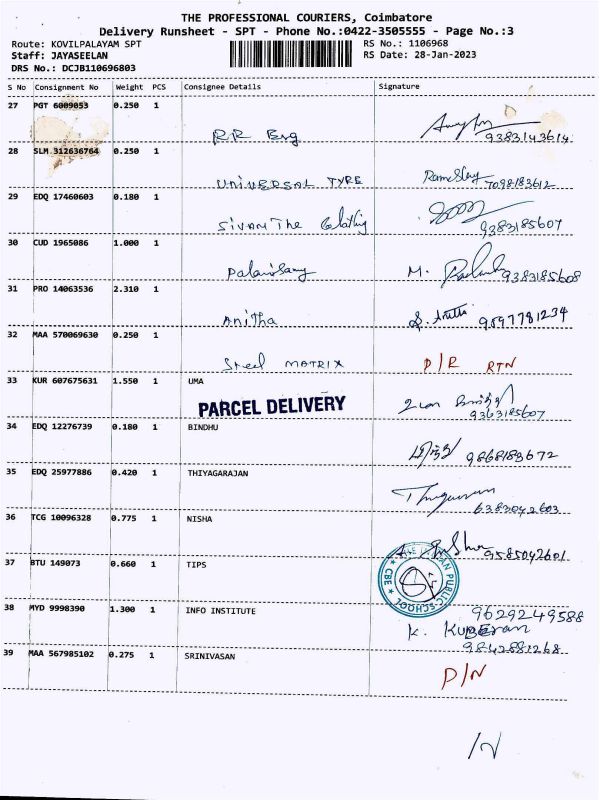 THE PROFESSIONAL COURIERS, Coimbatore
Delivery Runsheet - SPT - Phone No.:0422-3505555 - Page No.:3
Route: KOVILPALAYAM SPT RS No.: 1106968
Staff: JAYASEELAN RS Date: 28-Jan-2023
DRS No.: DCJB110696803
S No Consignment No Weight PCS Consignee Details Signature
27 PGT 6009053 0.250 1
RR Eng 9383143614
28 SLM 312636764 0.250 1
UNIVERSAL TYRE 7098183612
29 EDQ 17460603 0.180 1
Sivam The Clothing 9383185607
30 CUD 1965086 1.000 1
Palanisamy M. 9383185608
31 PRO 14063536 2.310 1
Anitha 9897781234
32 MAA 570069630 0.250 1
Steel MATRIX D/R RTN
33 KUR 607675631 1.550 1 UMA
PARCEL DELIVERY
9363185607
34 EDQ 12276739 0.180 1 BINDHU
9868183672
35 EDQ 25977886 0.420 1 THIYAGARAJAN
6383042603
36 TCG 10096328 0.775 1 NISHA
9585042601
37 BTU 149073 0.660 1 TIPS
PUBLIC SCHOOL CBE
38 MYD 9998390 1.300 1 INFO INSTITUTE 9629249588
K. Kuberan
9842881268
39 MAA 567985102 0.275 1 SRINIVASAN
D/N